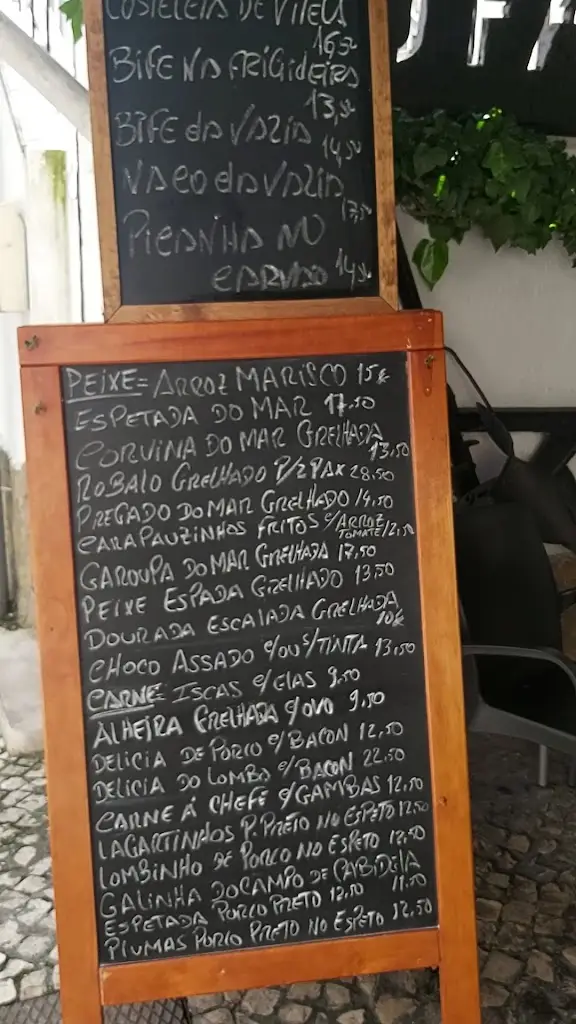 COSTELETA DE VITELA
16,50
BIFE NA FRIGIDEIRA
13,50
BIFE DA VAZIA
14,50
NACO DA VAZIA
17,50
PICANHA NO
CARVÃO 14,50
PEIXE= ARROZ MARISCO 15€
ESPETADA DO MAR 17.50
CORVINA DO MAR GRELHADA
13,50
ROBALO GRELHADO P/2 PAX 28.50
PREGADO DO MAR GRELHADO 14,50
CARAPAUZINHOS FRITOS C/ARROZ
TOMATE 12,50
GAROUPA DO MAR GRELHADA 17,50
PEIXE ESPADA GRELHADO 13,50
DOURADA ESCALADA GRELHADA
10€
CHOCO ASSADO C/OU S/TINTA 13,50
CARNE ISCAS C/ELAS 9,50
ALHEIRA GRELHADA C/OVO 9,50
DELICIA DE PORCO C/BACON 12,50
DELICIA DO LOMBO C/BACON 22,50
CARNE Á CHEFE C/GAMBAS 12,50
LAGARTINHOS P. PRETO NO ESPETO 12,50
LOMBINHO DE PORCO NO ESPETO 12,50
GALINHA DO CAMPO DE CABIDELA
11,50
ESPETADA PORCO PRETO 12,50
PLUMAS PORCO PRETO NO ESPETO 12,50